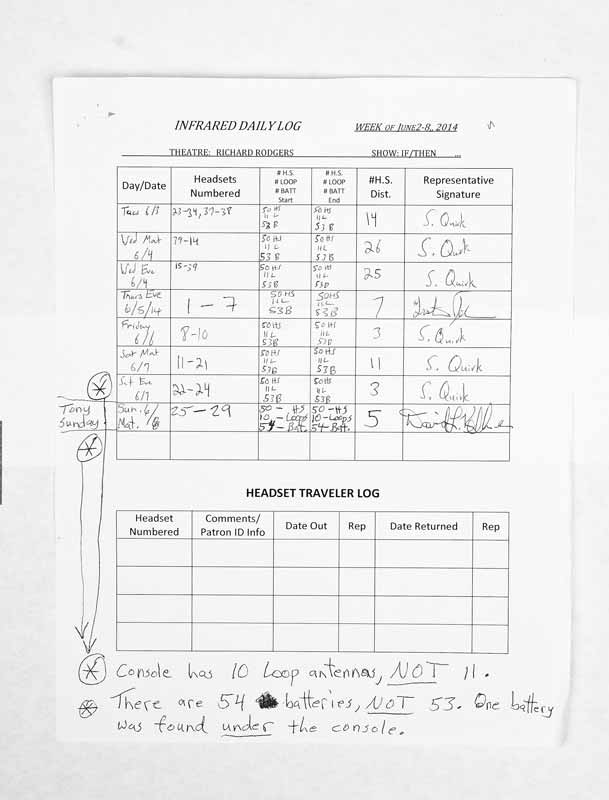 INFRARED DAILY LOG WEEK OF JUNE2-8, 2014
THEATRE: RICHARD RODGERS SHOW: IF/THEN
Day/Date Headsets Numbered # H.S. # LOOP # BATT Start # H.S. # LOOP # BATT End #H.S. Dist. Representative Signature
Tues 6/3 23-34, 37-38 50 HS 11 L 53 B 50 HS 11 L 53 B 14 S. Quirk
Wed Mat 6/4 50 HS 11 L 53 B 50 HS 11 L 53 B 26 S. Quirk
Wed Eve 6/4 15-39 50 HS 11 L 53 B 50 HS 11 L 53 B 25 S. Quirk
Thurs Eve 6/5/14 1-7 50 HS 11 L 53 B 50 HS 11 L 53 B 7
Friday 6/6 8-10 50 HS 11 L 53 B 50 HS 11 L 53 B 3 S. Quirk
Sat Mat 6/7 11-21 50 HS 11 L 53 B 50 HS 11 L 53 B 11 S. Quirk
Sat Eve 6/7 22-24 50 HS 11 L 53 B 50 HS 11 L 53 B 3 S. Quirk
Tony Sunday. Sun. 6/8 Mat. 25-29 50 - HS 10 - Loops 54 - Batt. 50 - HS 10 - Loops 54 - Batt. 5
HEADSET TRAVELER LOG
Headset Numbered Comments/ Patron ID Info Date Out Rep Date Returned Rep
Console has 10 Loop antennas, NOT 11.
There are 54 batteries, NOT 53. One battery
was found under the console.